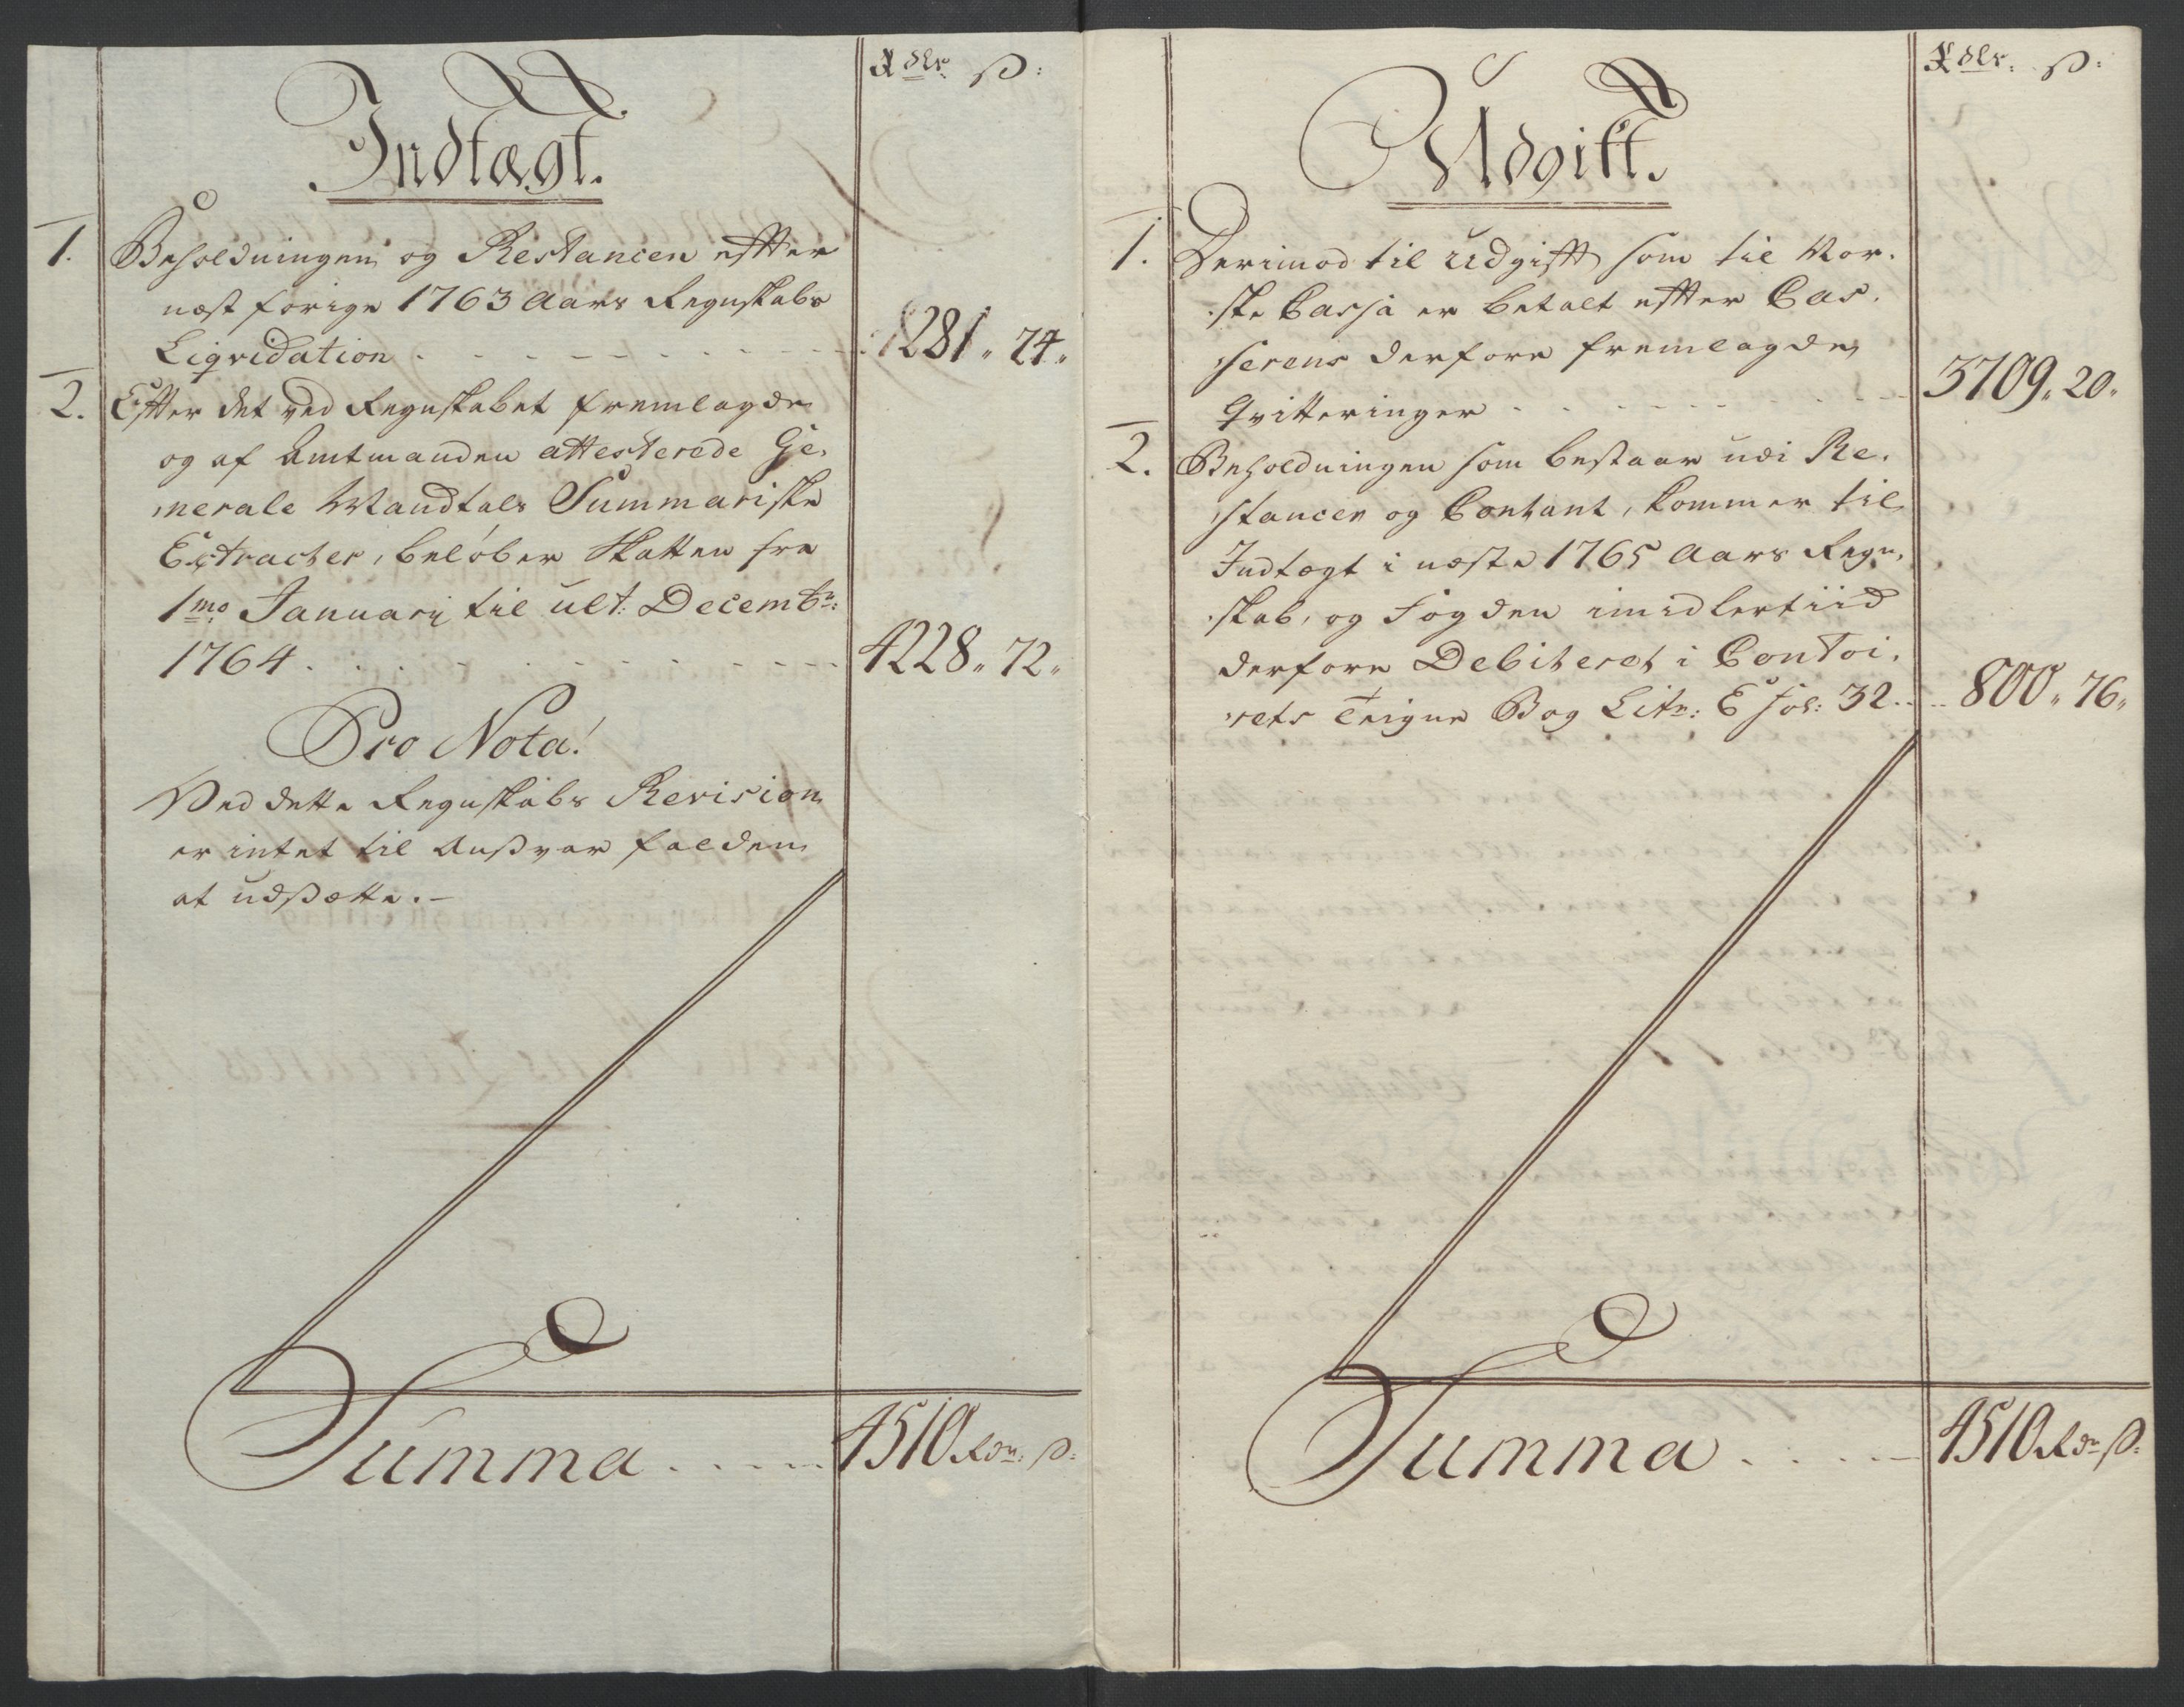 Rdlr ß:
Indtægt.
1. Beholdningen og Restancen effter
næst forige 1763 Aars Regnskabs
Liqvidation . . . . . 281 „ 24 „
2. Effter det ved Regnskabet fremlagde
og af Amtmanden attesterede Ge-
nerale Mandtals Summariske
Extracter, beløber Skatten fra
1mo Januarij til ult: Decembr:
1764 . . . . . 4228 „ 72 „
Pro Nota!
Ved dette Regnskabs Revision
er intet til Ansvar falden
at udsætte. –
Summa . . . . . 4510 Rdr: ß:
Rdlr. ß:
Udgift.
1. Derimod til Udgift som til Nor-
ske Cassa er betalt effter Cas-
serens derfore fremlagde
Qvitteringer . . . . . 3709 „ 20 „
2. Beholdningen som bestaar udi Re-
stancer og Contant, kommer til
Indtægt i næste 1765 Aars Regn-
skab, og Fogden imidlertiid
derfore Debiteret i Contoi-
rets Bog Litr: E fol: 32 . . 800 „ 76 „
Summa . . . . . 4510 Rdr ß: